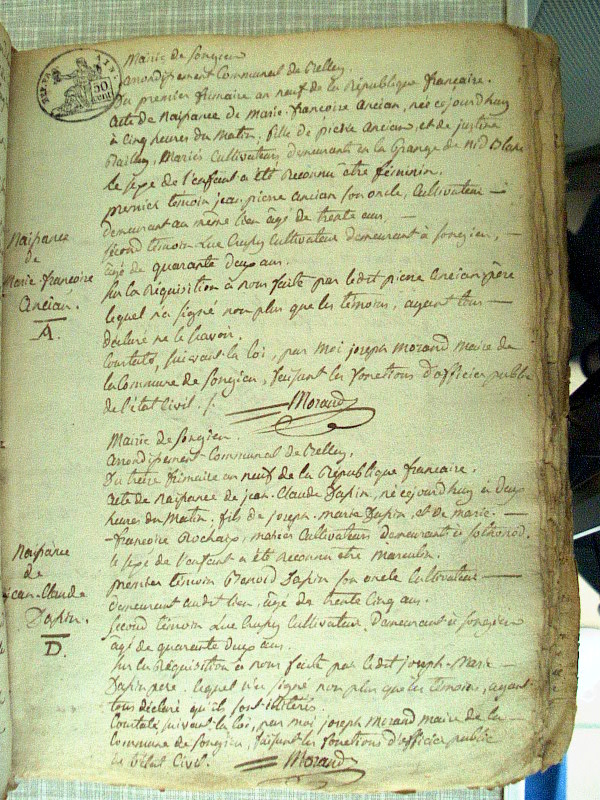 Mairie de Songieu
arrondissement Communal de Belley
Du premier frimaire an neuf de la République française.
acte de Naissance de Marie françoise Ancian, née cejourd'huy
à Cinq heures du Matin, fille de pierre Ancian, et de justine
Mariés Cultivateurs demeurants en la Grange de Nid Blanc
le sexe de l'enfant a été Reconnu être féminin.
premier témoin jean pierre ancian son oncle, Cultivateur
demeurant au même lieu âgé de trente ans,
second témoin Luc Cultivateur demeurant à songieu,
âgé de quarante deux ans.
Sur la Réquisition à nous faite par ledit pierre Ancian père
lequel n'a signé non plus que les témoins, ayant tous
déclaré ne le savoir.
Constaté, suivant la loi, par moi joseph Morand Maire de
la Commune de Songieu, faisant les fonctions d'officier public
de l'état Civil.
Morand
Naissance
de
Marie françoise
Ancian.
A.
Mairie de Songieu.
arrondissement Communal de Belley.
Du treize frimaire an neuf de la République française.
acte de Naissance de jean-Claude né cejourd'huy à Deux
heures du Matin, fils de joseph-marie et de marie
françoise mariés Cultivateurs demeurants à
le sexe de l'enfant a été Reconnu être Masculin.
premier témoin Benoid son oncle Cultivateur
demeurant audit lieu, âgé de trente Cinq ans.
Second témoin Luc Cultivateur demeurant à songieu
âgé de quarante deux ans.
Sur la Réquisition à nous faite par ledit joseph-Marie
père. lequel n'a signé non plus que les témoins, ayant
tous déclaré qu'ils sont illitérés.
Constaté suivant la loi, par moi joseph Morand maire de la
Commune de Songieu, faisant les fonctions d'officier public
de l'état Civil.
Morand
Naissance
de
jean-Claude
D.